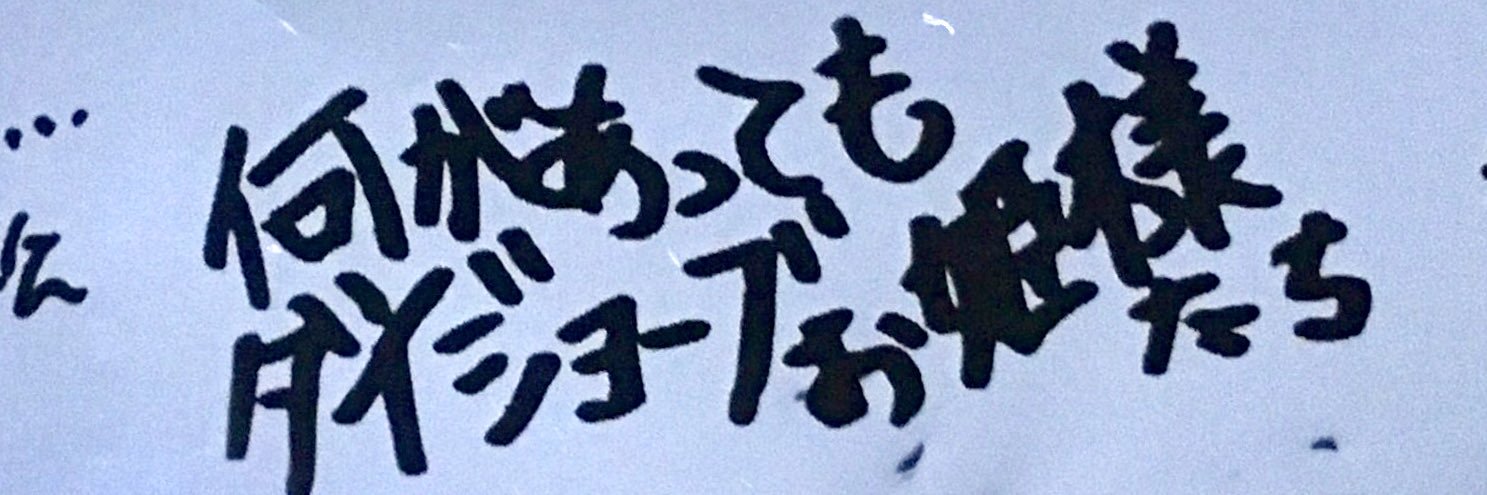 何があっても
ダイジョーブお姫様たち